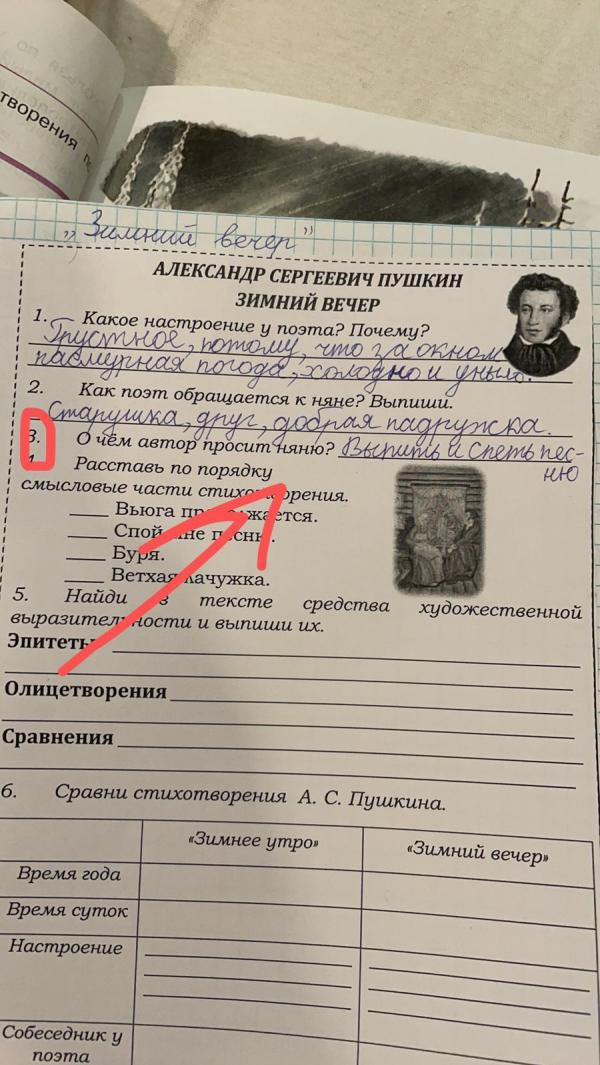 творения п
„Зимний вечер"
АЛЕКСАНДР СЕРГЕЕВИЧ ПУШКИН
ЗИМНИЙ ВЕЧЕР
1. Какое настроение у поэта? Почему?
Грустное, потому, что за окном
пасмурная погода, холодно и уныло.
2. Как поэт обращается к няне? Выпиши.
Старушка, друг, добрая падружка.
3. О чём автор просит няню? Выпить и спеть пес-
ню
Расставь по порядку
смысловые части стихотворения.
Вьюга продолжается.
Спой мне песню.
Буря.
Ветхая лачужка.
5. Найди в тексте средства художественной
выразительности и выпиши их.
Эпитеты
Олицетворения
Сравнения
6. Сравни стихотворения А. С. Пушкина.
«Зимнее утро» «Зимний вечер»
Время года
Время суток
Настроение
Собеседник у
поэта